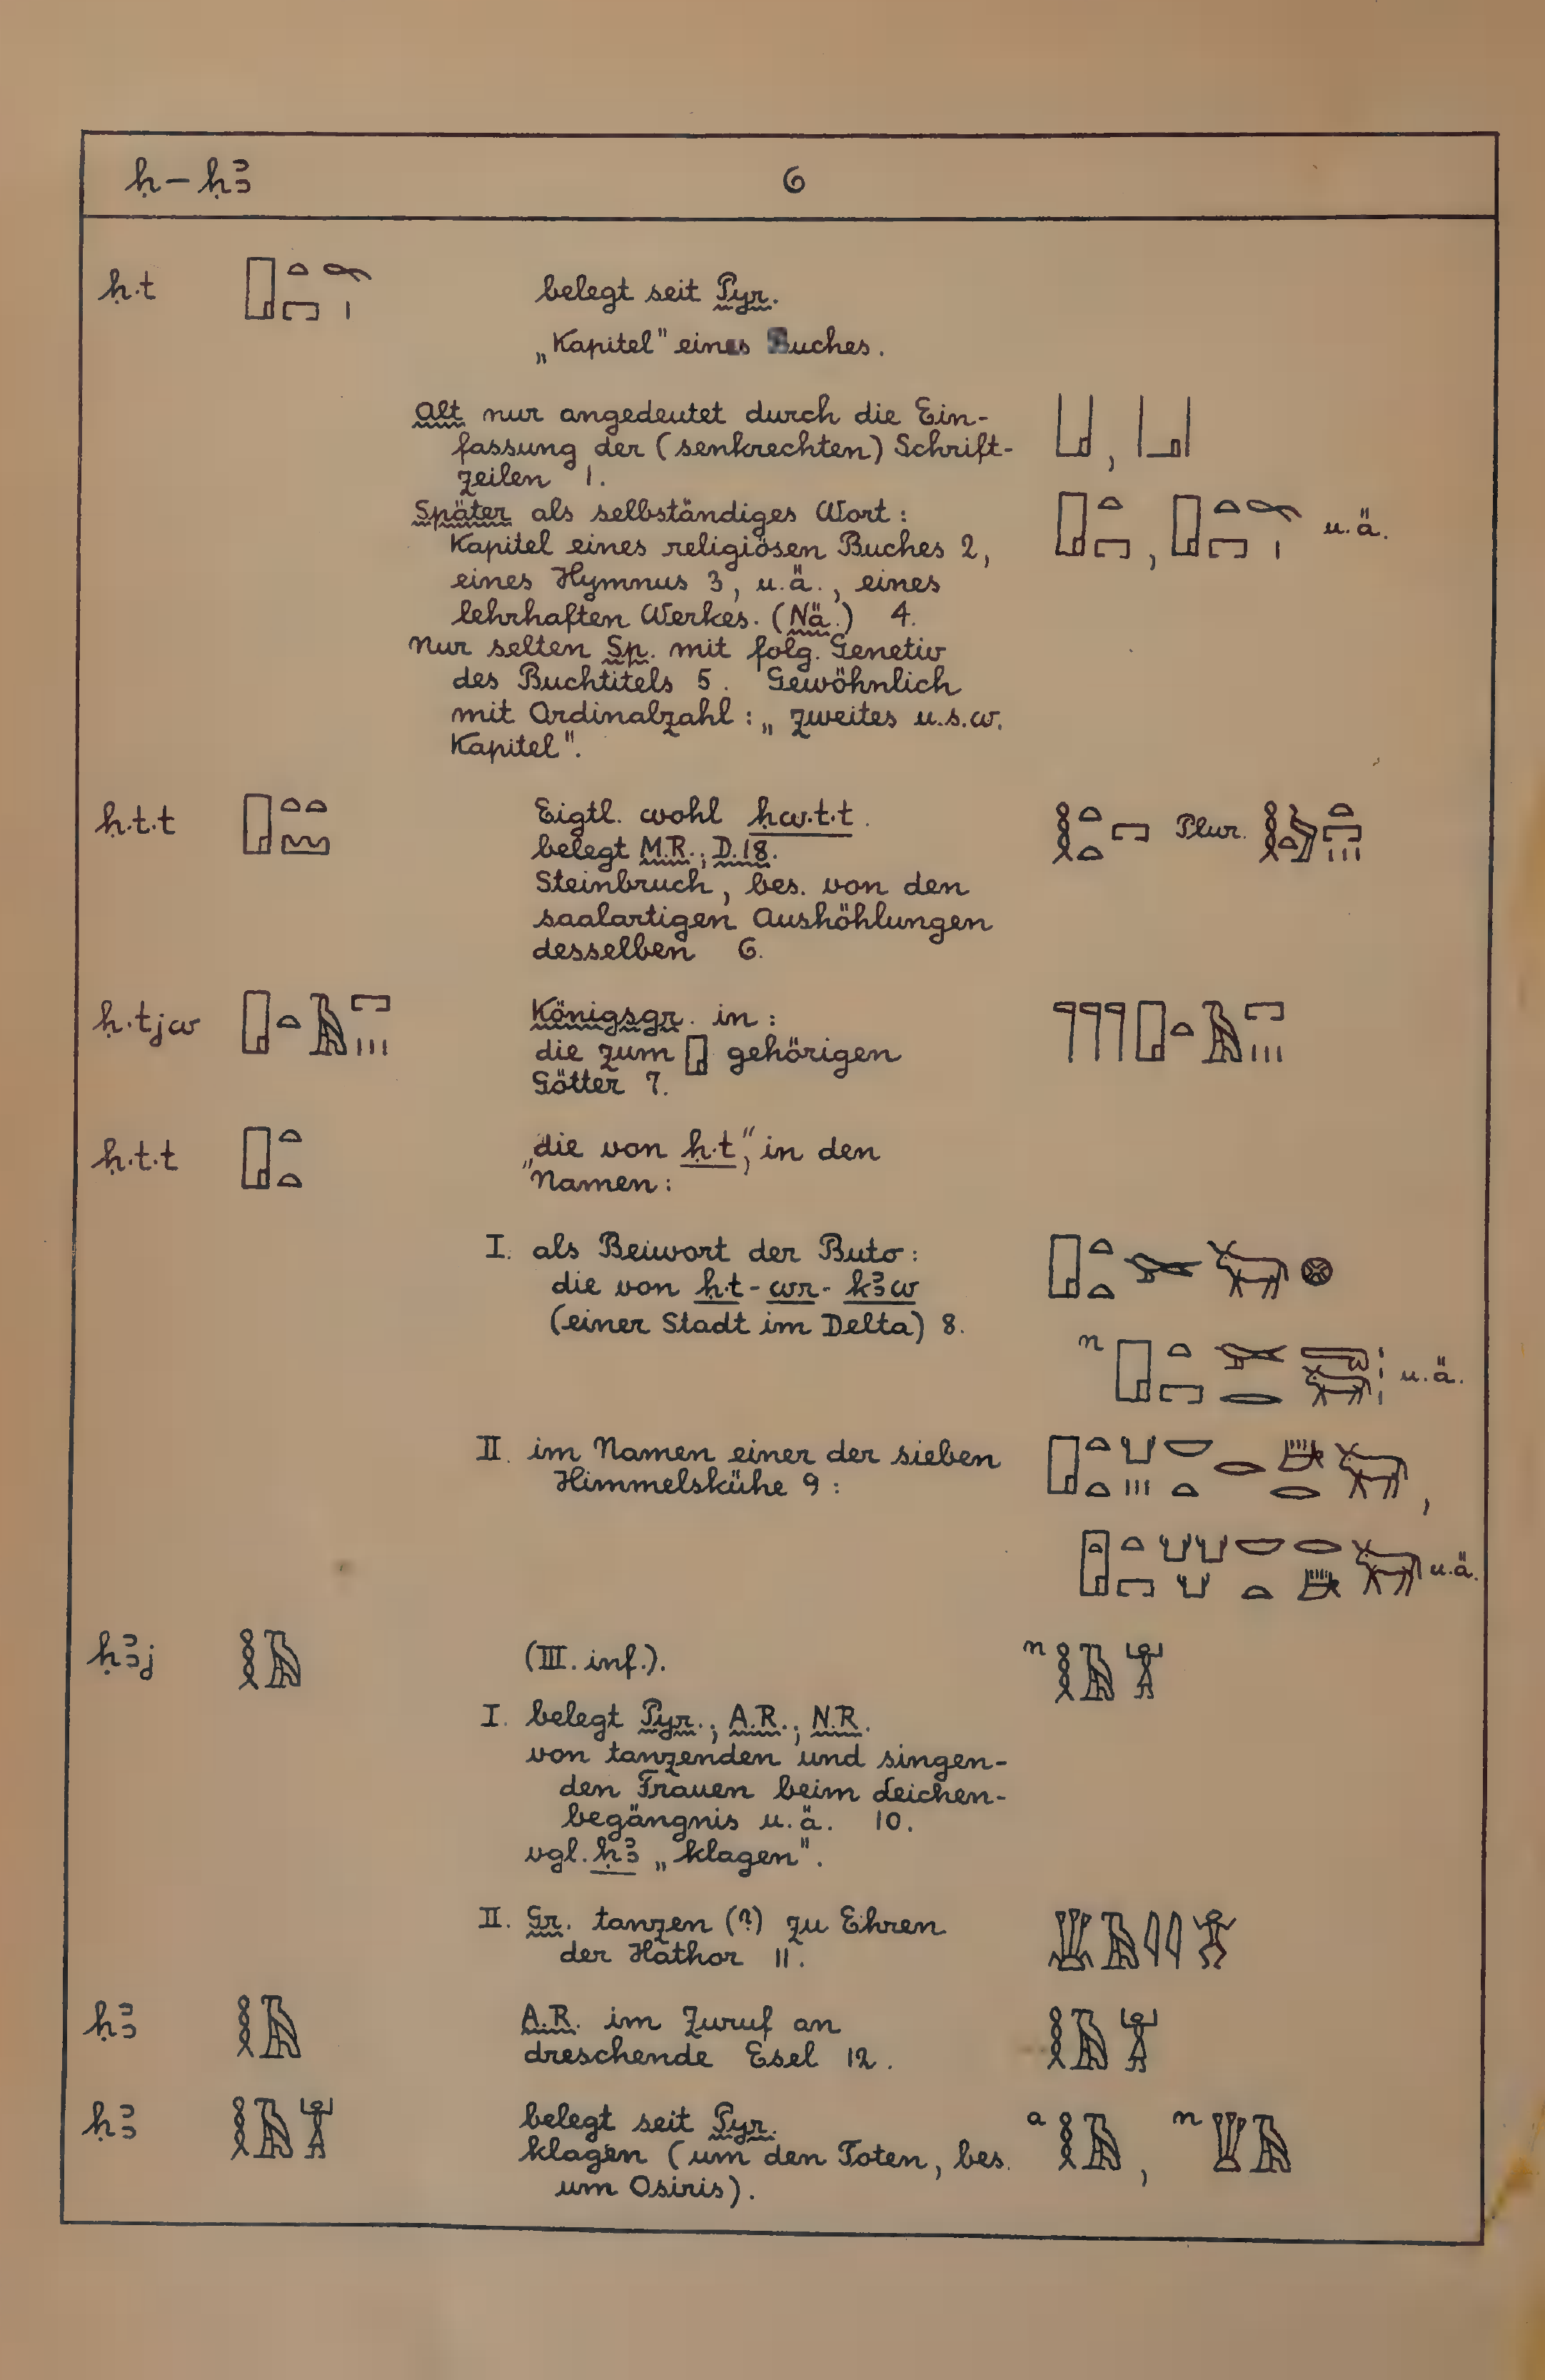 ḥ – ḥꜣ 6
ḥ.t
belegt seit Pyr.
„Kapitel" eines Buches.
Alt nur angedeutet durch die Ein-
fassung der (senkrechten) Schrift-
zeilen 1.
Später als selbständiges Wort:
Kapitel eines religiösen Buches 2, u.ä.
eines Hymnus 3, u.ä., eines
lehrhaften Werkes. (Nä.) 4.
Nur selten Sp. mit folg. Genetiv
des Buchtitels 5. Gewöhnlich
mit Ordinalzahl: „zweites u.s.w.
Kapitel".
ḥ.t.t Eigtl. wohl ḥw.t.t. Plur.
belegt M.R.; D.18.
Steinbruch, bes. von den
saalartigen Aushöhlungen
desselben 6.
ḥ.tjw Königsgr. in:
die zum 𓉗 gehörigen
Götter 7.
ḥ.t.t „die von ḥ.t", in den
Namen:
I. als Beiwort der Buto:
die von ḥ.t-wr-kꜣw
(einer Stadt im Delta) 8.
n u.ä.
II. im Namen einer der sieben
Himmelskühe 9:
u.ä.
ḥꜣj (III. inf.). n
I. belegt Pyr.; A.R.; N.R.
von tanzenden und singen-
den Frauen beim Leichen-
begängnis u.ä. 10.
vgl. ḥꜣ „klagen".
II. Gr. tanzen (?) zu Ehren
der Hathor 11.
ḥꜣ A.R. im Zuruf an
dreschende Esel 12.
ḥꜣ belegt seit Pyr. a , n
klagen (um den Toten, bes.
um Osiris).